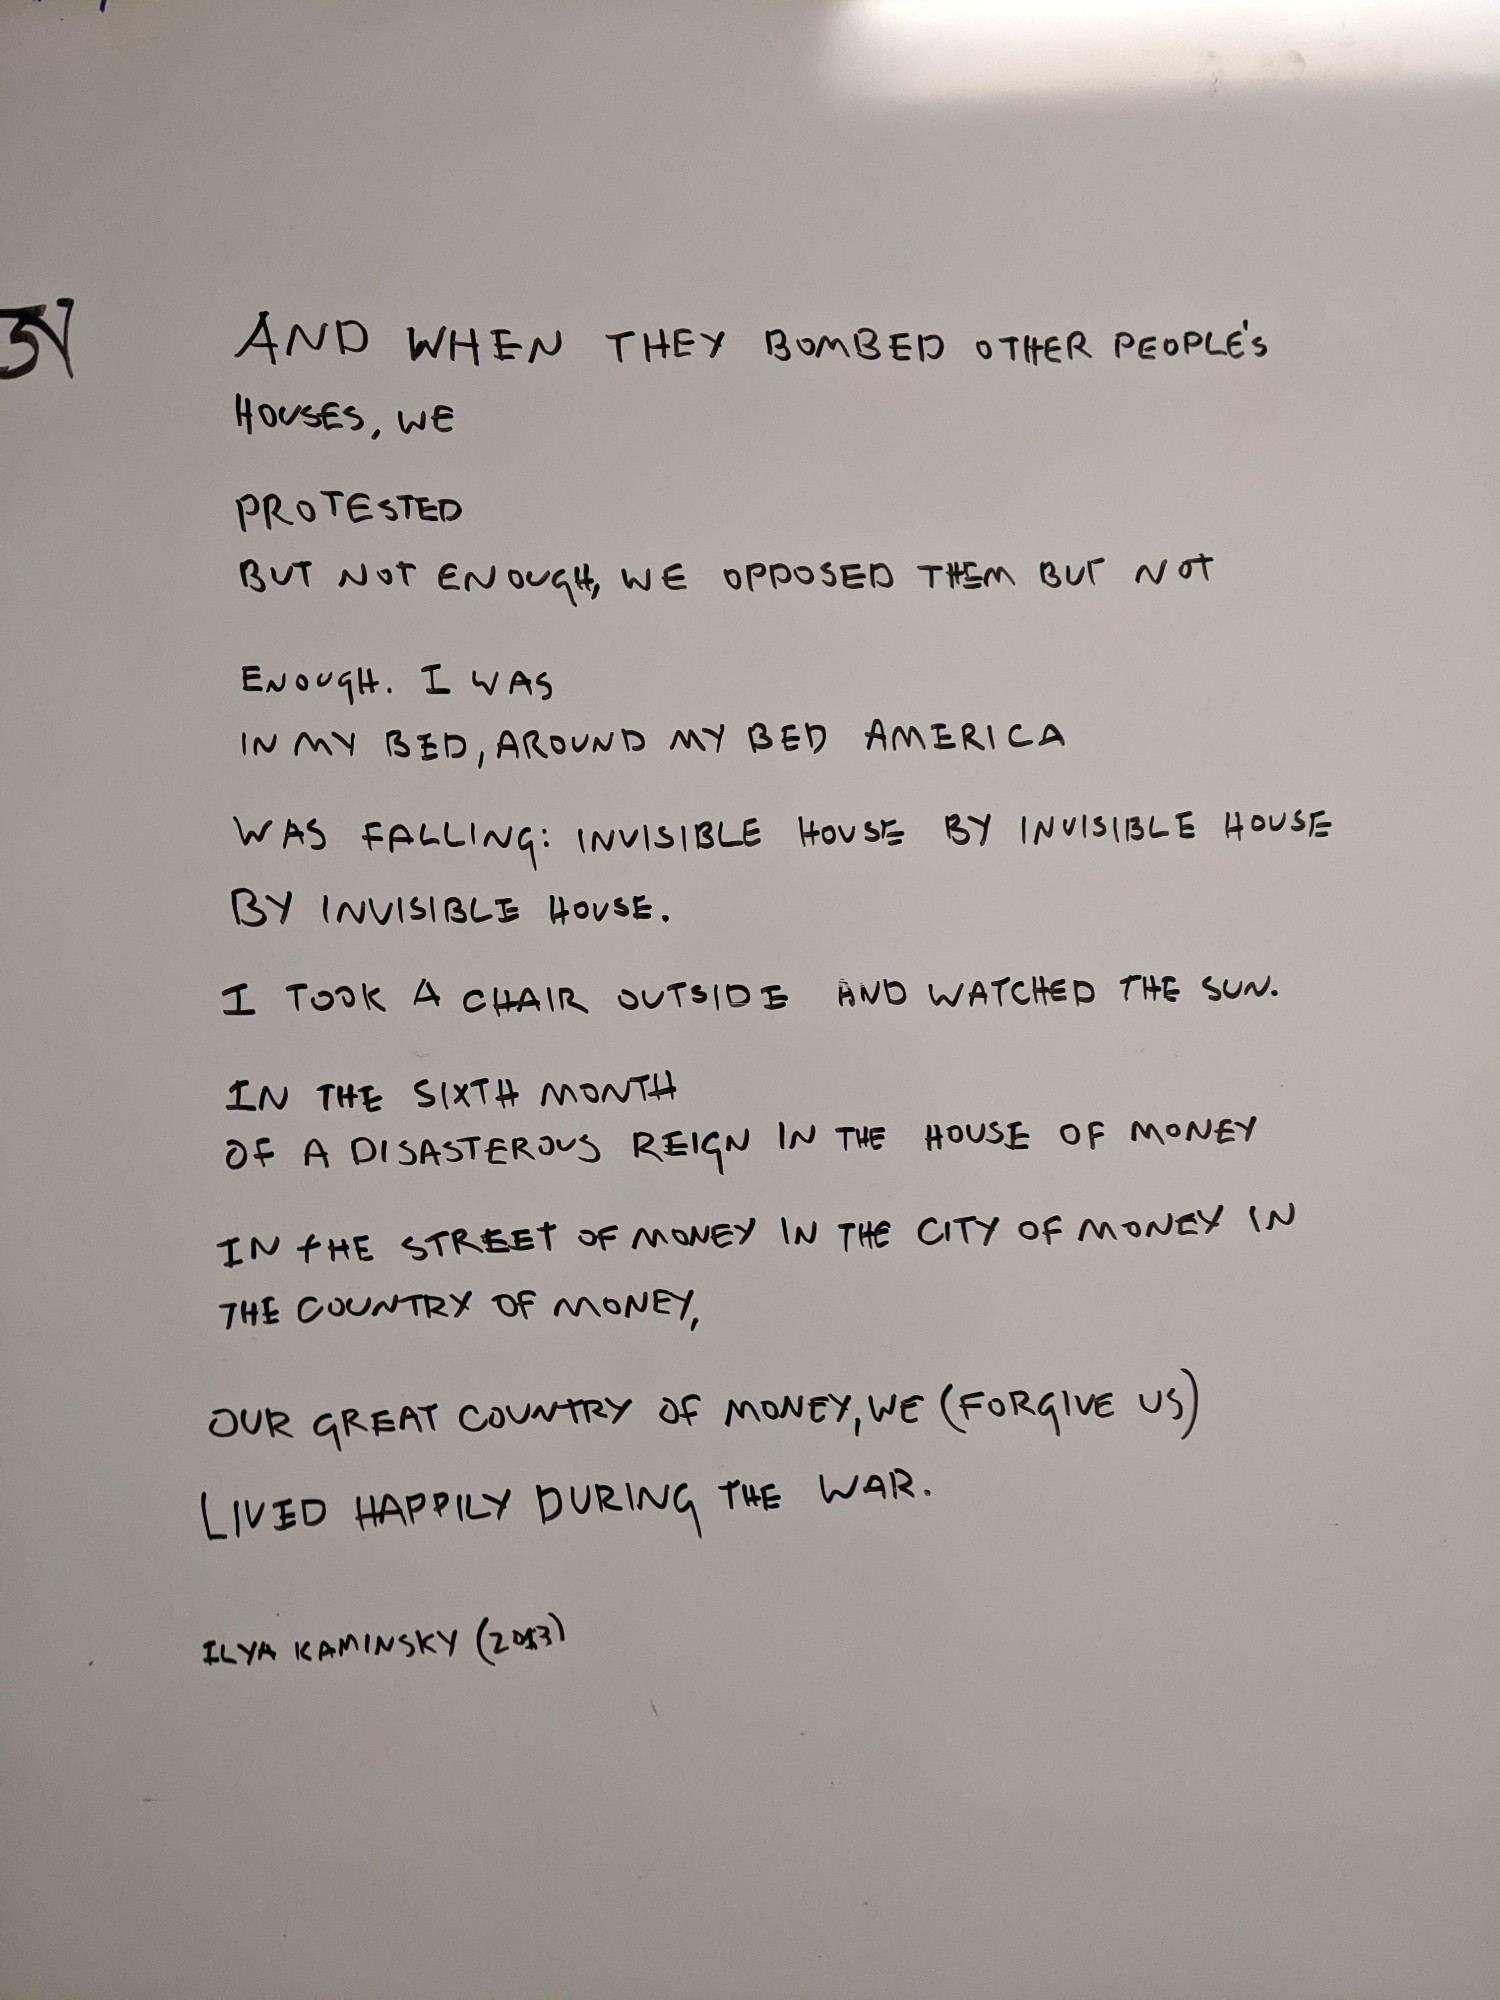 AND WHEN THEY BOMBED OTHER PEOPLE'S
HOUSES, WE
PROTESTED
BUT NOT ENOUGH, WE OPPOSED THEM BUT NOT
ENOUGH. I WAS
IN MY BED, AROUND MY BED AMERICA
WAS FALLING: INVISIBLE HOUSE BY INVISIBLE HOUSE
BY INVISIBLE HOUSE.
I TOOK A CHAIR OUTSIDE AND WATCHED THE SUN.
IN THE SIXTH MONTH
OF A DISASTEROUS REIGN IN THE HOUSE OF MONEY
IN THE STREET OF MONEY IN THE CITY OF MONEY IN
THE COUNTRY OF MONEY,
OUR GREAT COUNTRY OF MONEY, WE (FORGIVE US)
LIVED HAPPILY DURING THE WAR.
ILYA KAMINSKY (2013)